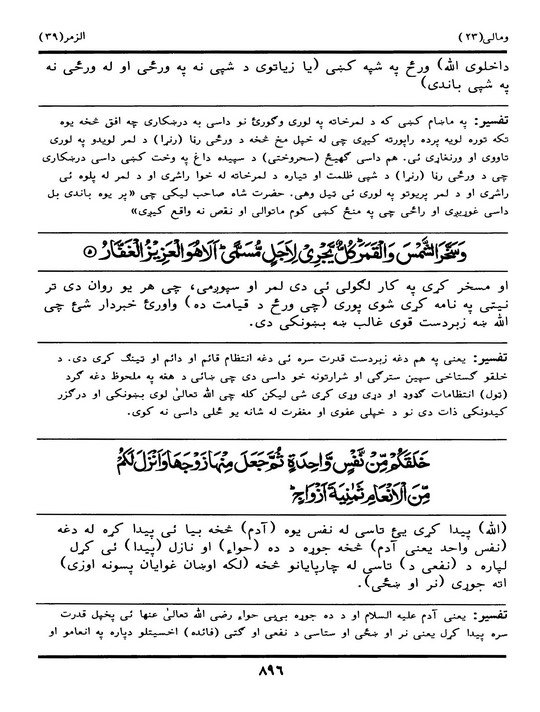 ومالی(۲۳) الزمر(۳۹)
داخلوی الله) ورځ په شپه کښی (یا زیاتوی د شپی نه په ورځی او له ورځی نه
په شپی باندی)
تفسیر: په ماښام کښی که د لمرخاته په لوری وګورئ نو داسی به درښکاری چه افق څخه یوه
تکه توره لویه پرده راپورته کیږی چی له خپل مخ څخه د ورځی رڼا (رنړا) د لمر لویدو په لوری
تاووی او ورنغاړی ئی. هم داسی ګهیځ (سحروختی) د سپیده داغ په وخت کښی داسی درښکاری
چی د ورځی رڼا (رنړا) د شپی ظلمت او تیاره د لمرخاته له خوا راشړی او د لمر له پلوه ئی
راشړی او د لمر پریوتو په لوری ئی تیل وهی. حضرت شاه صاحب لیکی چی «پر یوه باندی بل
داسی غوړیږی او راځی چی په منځ کښی کوم ماتوالی او نقص نه واقع کیږی»
وَسَخَّرَ الشَّمْسَ وَالْقَمَرَ كُلٌّ يَّجْرِىْ لِاَجَلٍ مُّسَمًّى اَلَاهُوَالْعَزِيْزُالْغَفَّارُ ۵
او مسخر کړی په کار لګولی ئی دی لمر او سپوږمی، چی هر یو روان دی تر
نیټی په نامه کړی شوی پوری (چی ورځ د قیامت ده) واورئ خبردار شئ چی
الله ښه زبردست قوی غالب ښه بښونکی دی.
تفسیر: یعنی په هم دغه زبردست قدرت سره ئی دغه انتظام قائم او دائم او ټینګ کړی دی. د
خلقو ګستاخی سپین سترګی او شرارتونه خو داسی دی چی ښائی د هغه په ملحوظ دغه ګرد
(ټول) انتظامات ګډوډ او دړی وړی کړی شی لیکن کله چی الله تعالیٰ لوی بښونکی او درګزر
کیدونکی ذات دی نو د خپلی عفوی او مغفرت له شانه یو ځلی داسی نه کوی.
خَلَقَكُمْ مِّنْ نَّفْسٍ وَّاحِدَةٍ ثُمَّ جَعَلَ مِنْهَا زَوْجَهَا وَاَنْزَلَ لَكُمْ
مِّنَ الْاَنْعَامِ ثَمٰنِيَةَ اَزْوَاجٍ
(الله) پیدا کړی یئ تاسی له نفس یوه (آدم) څخه بیا ئی پیدا کړه له دغه
(نفس واحد یعنی آدم) څخه جوړه د ده (حواء) او نازل (پیدا) ئی کړل
لپاره د (نفعی د) تاسی له چارپایانو څخه (لکه اوښان غوایان پسونه اوزی)
اته جوړی (نر او ښځی).
تفسیر: یعنی آدم علیه السلام او د ده جوړه بی‌بی حواء رضی الله تعالیٰ عنها ئی پخپل قدرت
سره پیدا کړل یعنی نر او ښځی او ستاسی د نفعی او ګټی (فائده) اخسیتلو دپاره په انعامو او
۸۹۶